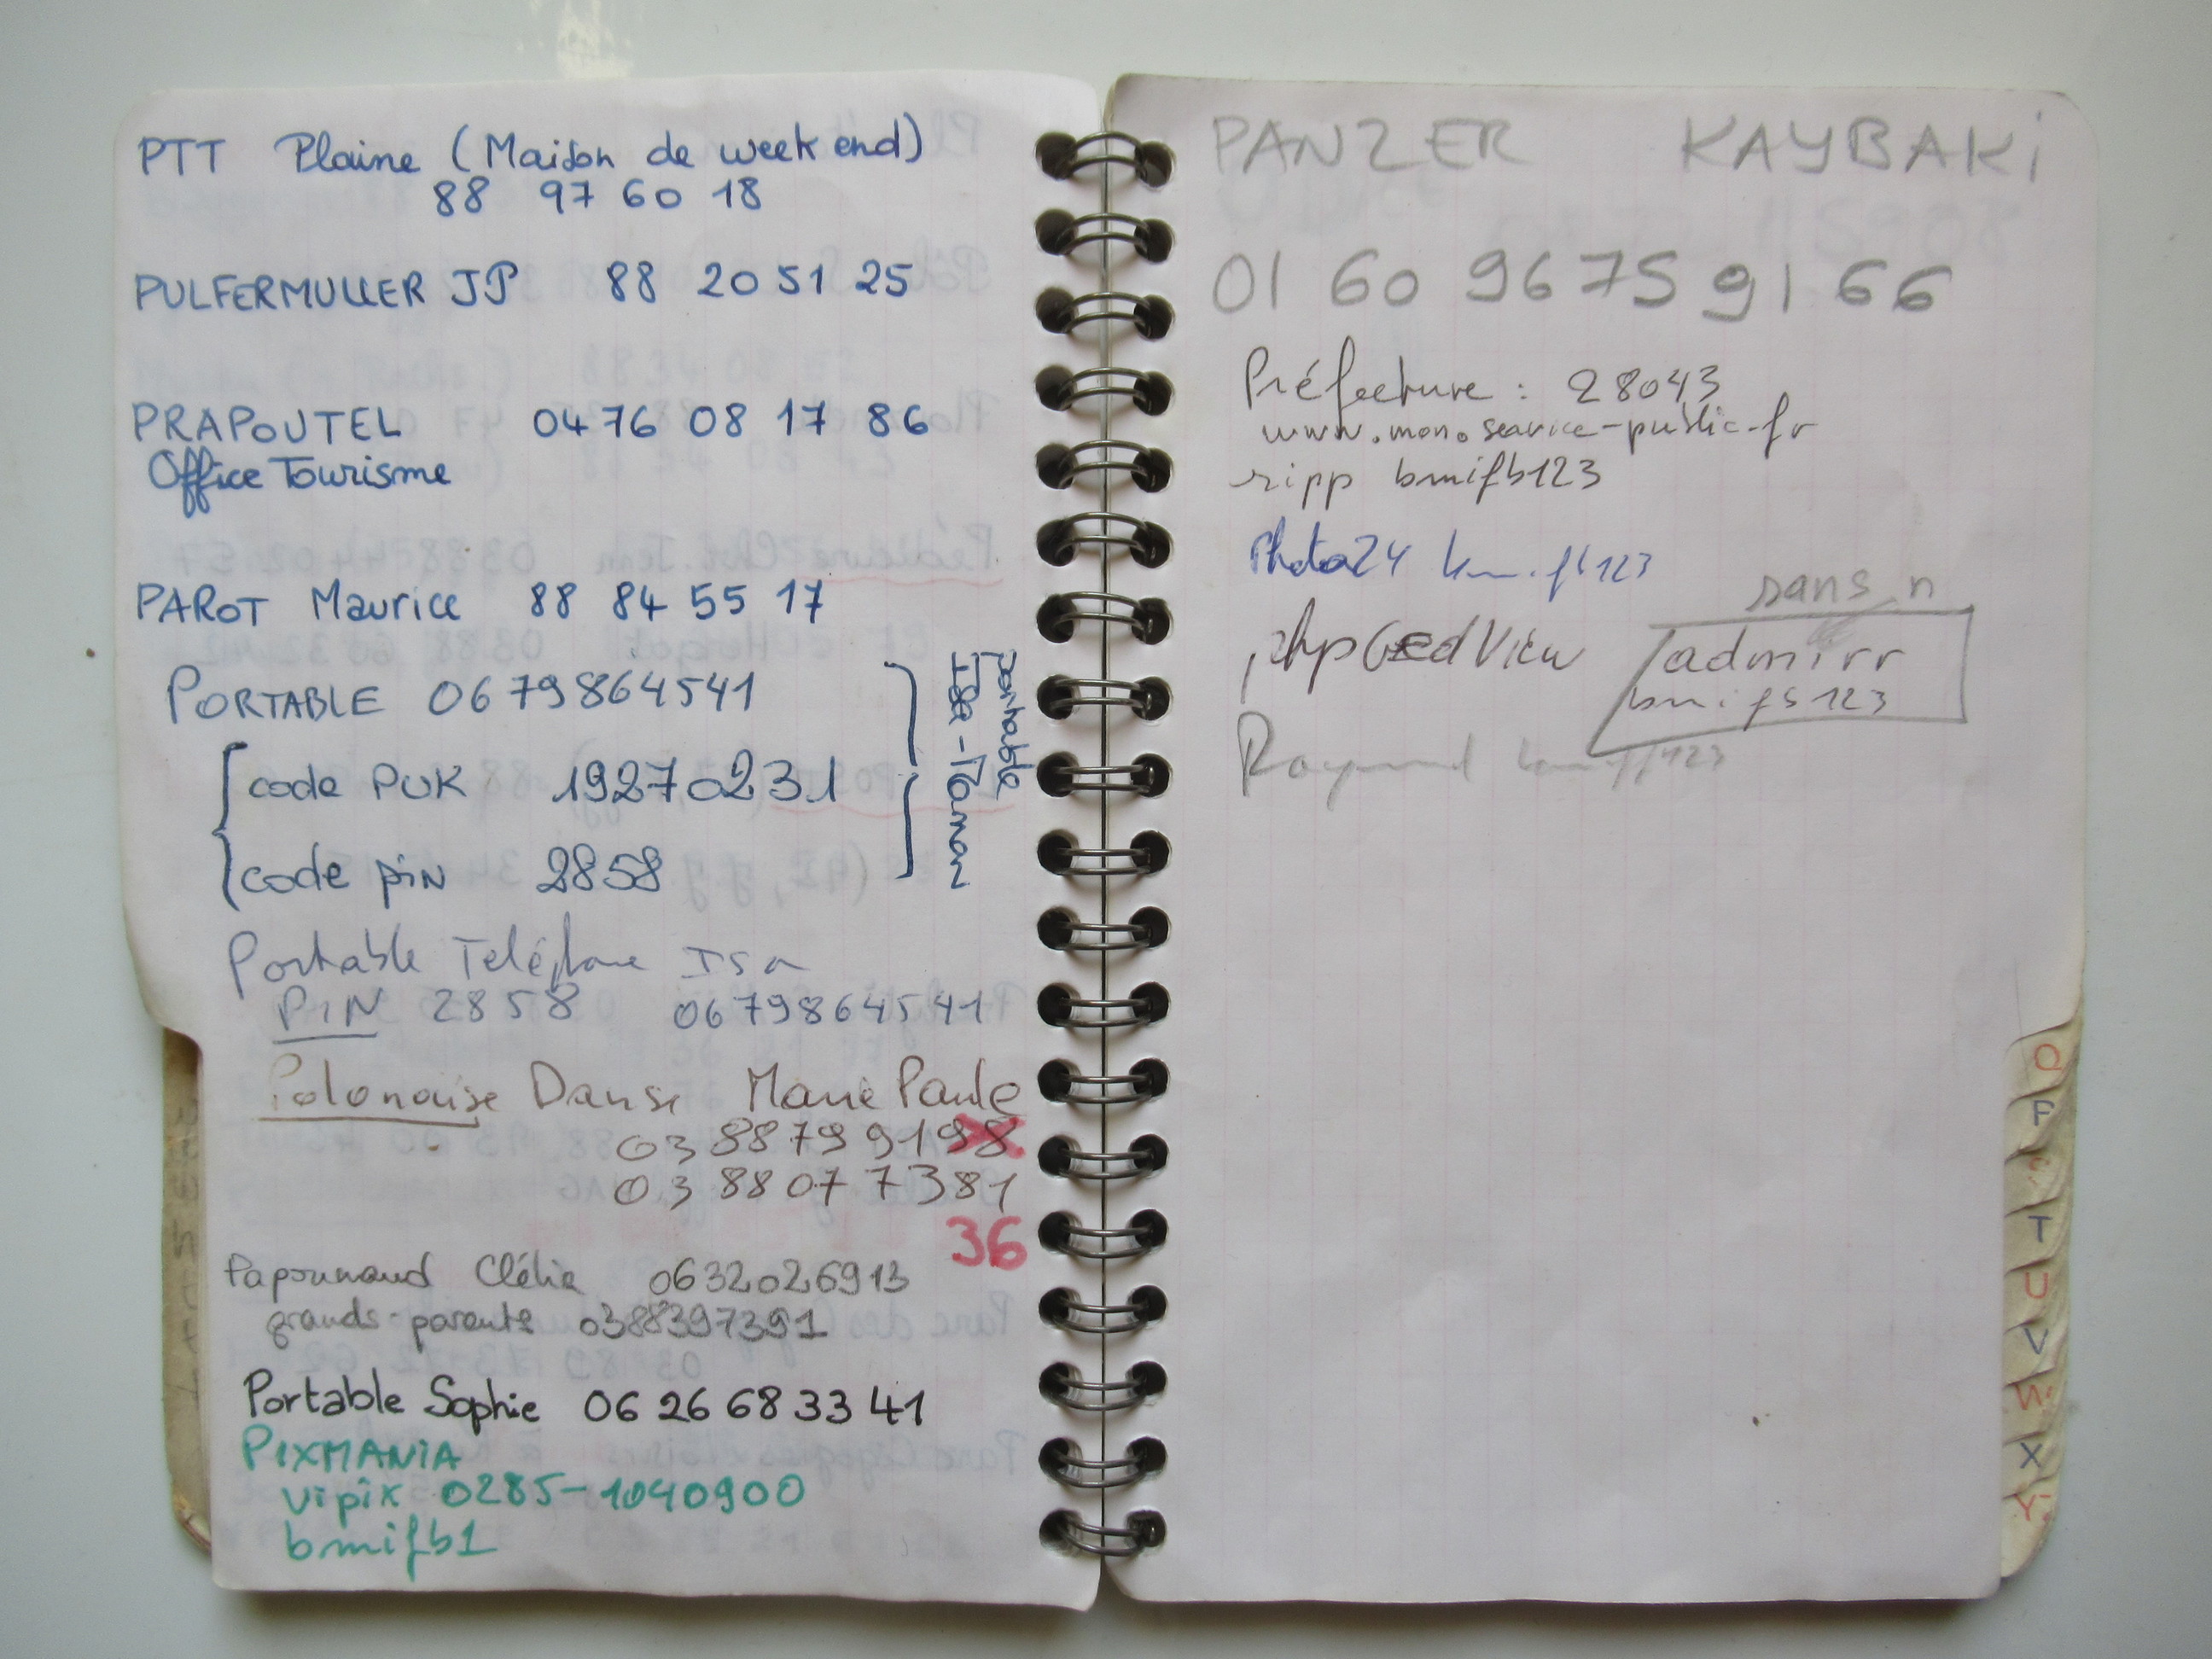 PTT Plaine (Maison de week end)
88 97 60 18
PULFERMULLER JP 88 20 51 25
PRAPOUTEL 0476 08 17 86
Office Tourisme
PAROT Maurice 88 84 55 17
PORTABLE 06 79864541
code PUK 19270231
code PIN 2858
portable
Isa-Manan
Portable Teléphone Isa
PIN 2858 0679864541
Polonaise Danse Marie Paule
03 88799198
03 88 07 7381
36
Clélia 0632026913
grands-parents 0388397391
Portable Sophie 06 26 68 33 41
PIXMANIA
vipix 0285-1040900
bmifb1
PANZER KAYBAKi
01 60 96 75 91 66
Préfecture : 28043
www.mon.service-public.fr
ripp bmifb123
Photo24 bmifb123
sans n
phpGedView admirr
bmifb123
Raymond
O
P
T
U
V
W
X
Y